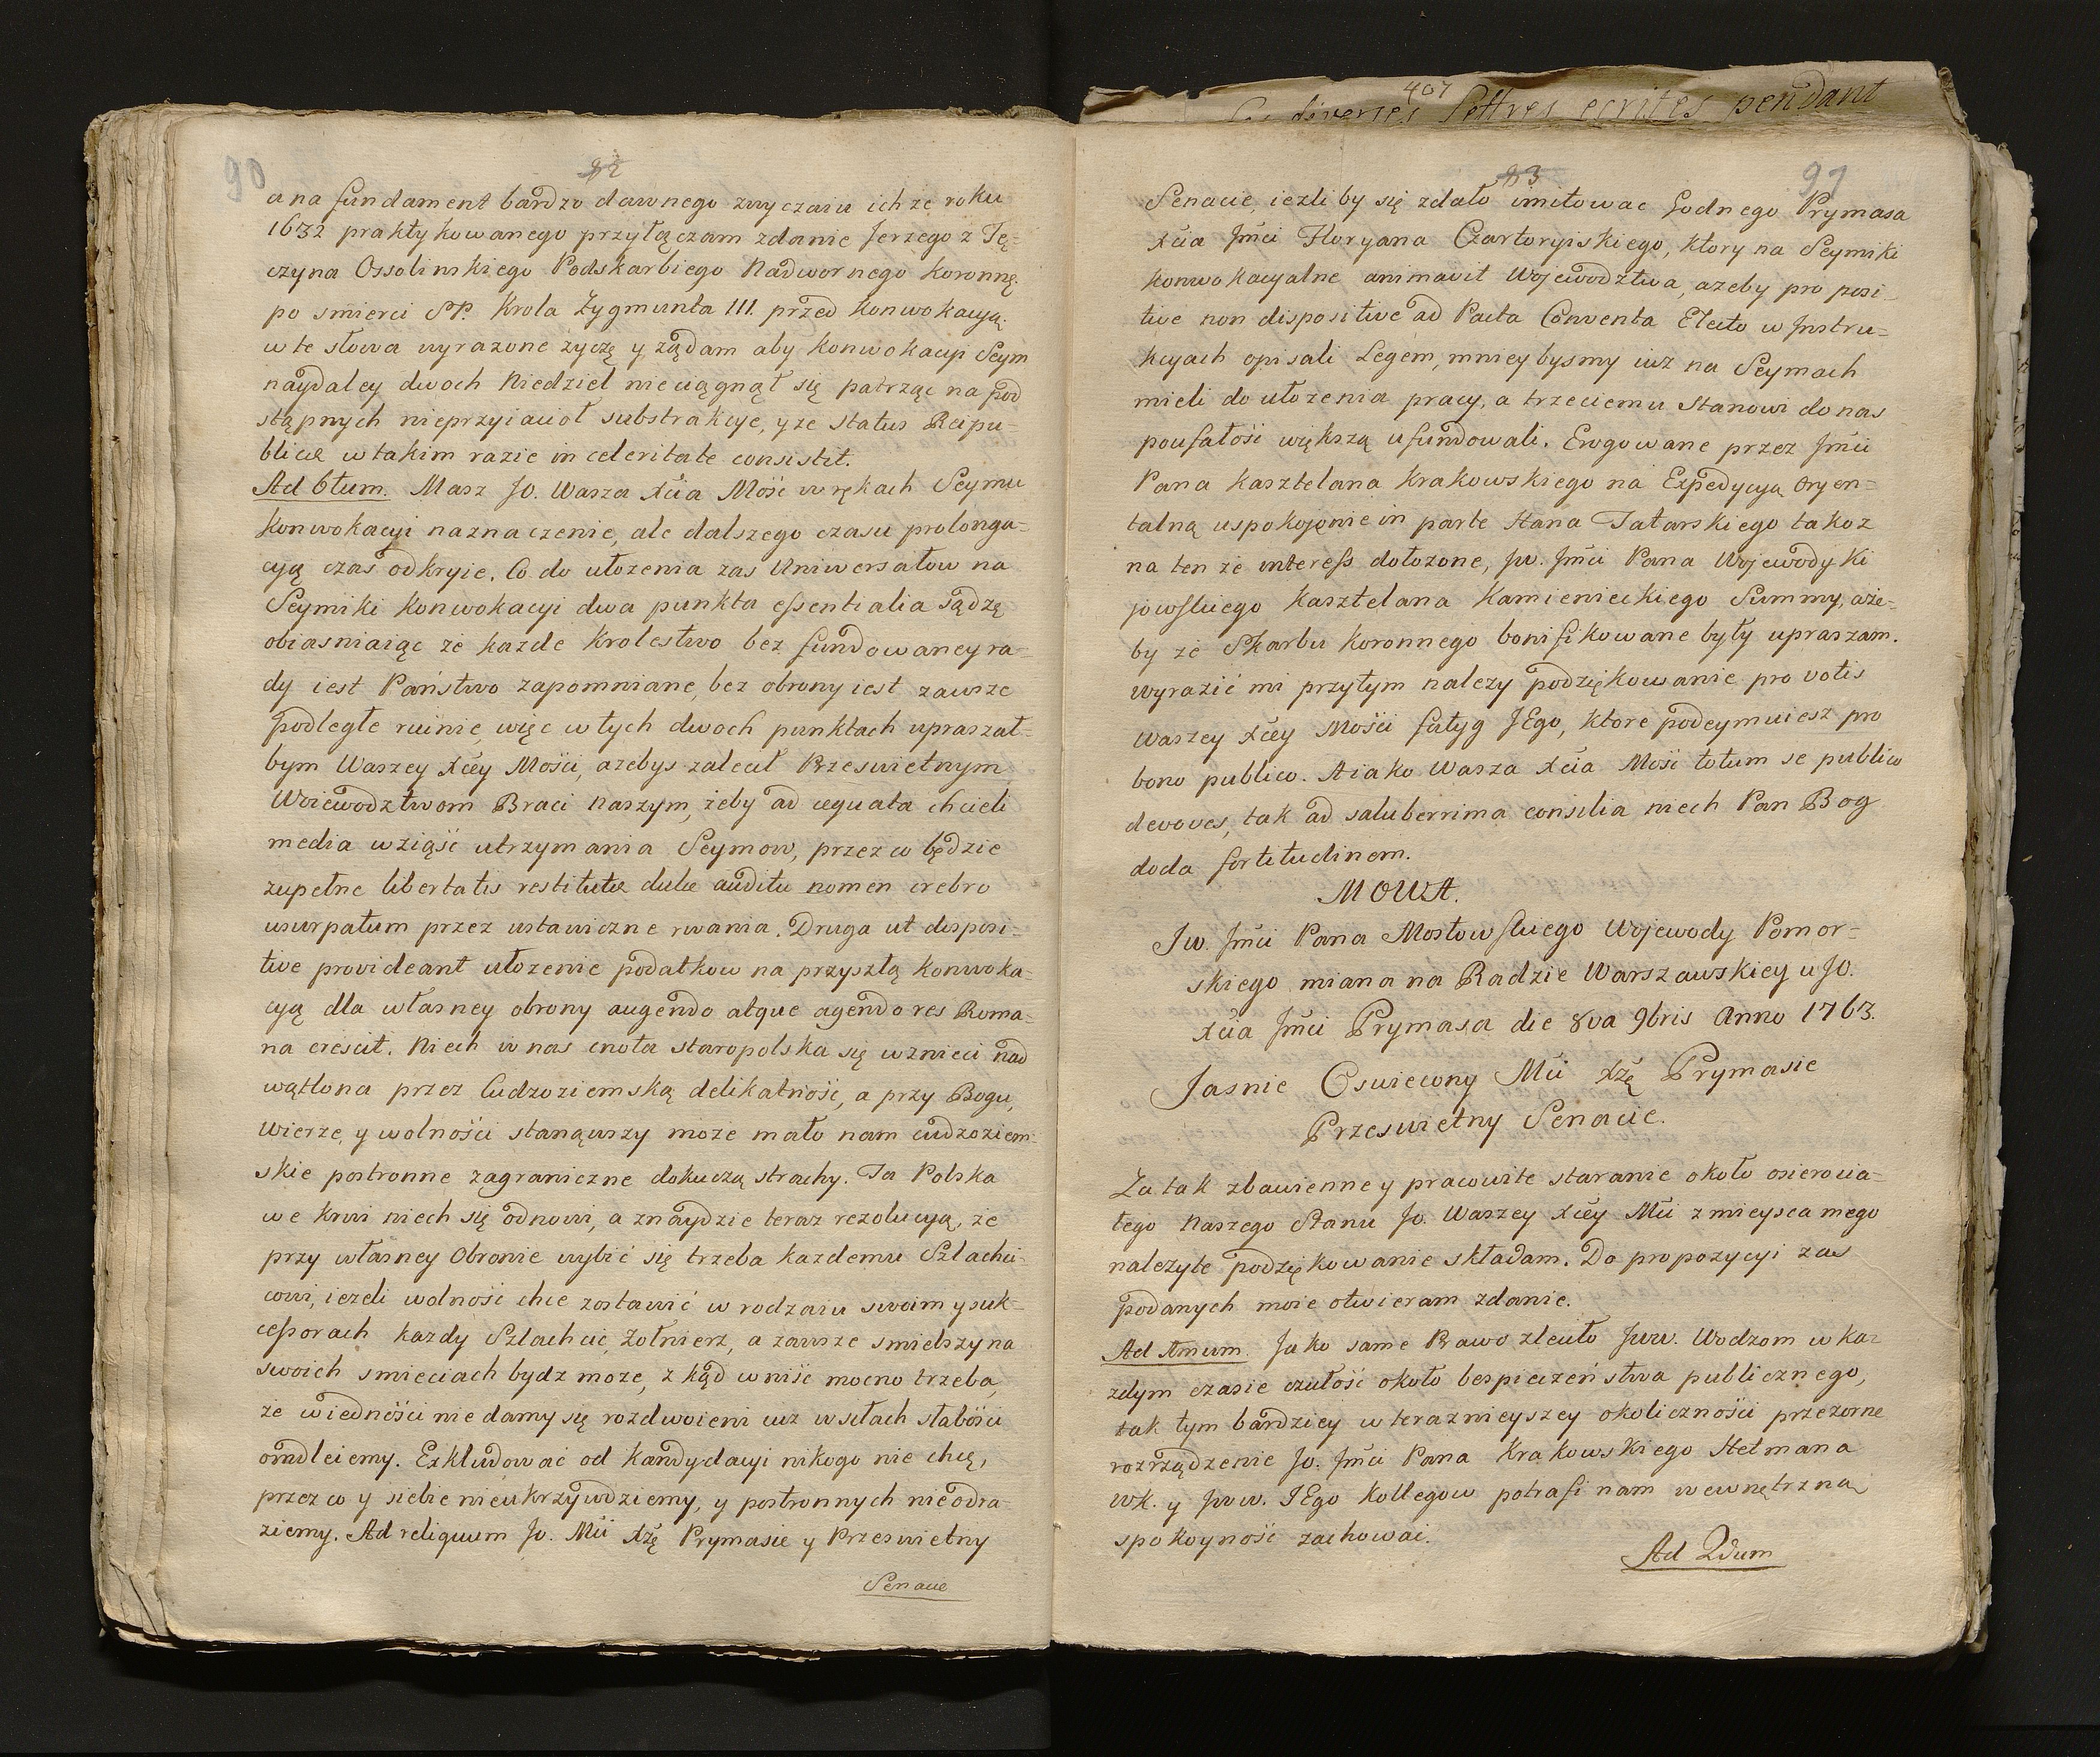 90
82
a na fundament bardzo dawnego zwyczaiu ichże roku
1632 praktykowanego przyłączam zdanie Jerzego z Tę=
czyna Ossolinskiego Podskarbiego Nadwornego Koronne.
po smierci SP. Krola Zygmunta III. przed Konwokacyą.
w te słowa wyrazone życzę y żądam aby Konwokacyi Seym
naydaley dwoch Niedziel nieciągnął się patrząc na pod
stąpnych nieprzyiacioł substrakcye, y że Status Reipu=
blicæ w takim razie in celeritate consistit.
Ad 6tum. Masz JO. Wasza Xcia Mość w rękach Seymu
Konwokacyi naznaczenie, ale dalszego czasu prolonga=
cyą czas odkryie. Co do ułozenia zas Uniwersałow na
Seymiki Konwokacyi dwa punkta essentialia sądzę
obiasniaiąc że kazde Krolestwo bez fundowaney ra=
dy iest Państwo zapomniane, bez obrony iest zawsze
podległe ruinie, więc w tych dwoch punktach upraszał=
bym Waszey Xcey Mości, azebys zalecił Przeswietnym
Woiewodztwom Braci Naszym, żeby ad æquata chcieli
media wziąść utrzymania Seymow, przez co będzie
zupełne libertatis restitutæ dulce auditu nomen crebro
usurpatum przez ustawiczne rwania. Druga ut disposi=
tive provideant ułozenie podatkow na przyszłą Konwoka=
cyą dla własney obrony augendo atque agendo res Roma=
na crescit. Niech w nas cnota staropolska się wznieci nad
wątlona przez Cudzoziemską delikatność, a przy Bogu,
Wierze, y wolności stanąwszy moze mało nam cudzoziem=
skie postronne zagraniczne dokuczą strachy. Ta Polska
we krwi niech się odnowi, a znaydzie teraz rezolucyą, że
przy własney Obronie wybić się trzeba kazdemu Szlachci=
cowi, iezeli wolność chce zostawić w rodzaiu swoim y suk=
cessorach kazdy Szlachcic, Zołnierz, a zawsze smielszy na
swoich smieciach bydz moze, z kąd wniść mocno trzeba,
że w iedności nie damy się rozdwoieni iuz w siłach słabości
omdleiemy. Exkludować od Kandydacyi nikogo nie chcę,
przez co y siebie nieukrzywdziemy, y postronnych nieodra=
ziemy. Ad reliquum JO. Mci Xżę Prymasie y Przeswietny
Senacie
407
diverses lettres ecrites pendant
83
91
Senacie, iezliby się zdało imitowac Godnego Prymasa
Xcia Jmci Floryana Czartoryiskiego, ktory na Seymiki
Konwokacyalne animavit Wojewodztwa, azeby pro posi=
tive non dispositive ad Pacta Conventa Electo w Instru=
kcyach opisali Legem, mniey bysmy iuz na Seymach
mieli do ułozenia pracy, a trzeciemu Stanowi do nas
poufałość większą ufundowali. Erogowane przez Jmci
Pana Kasztelana Krakowskiego na Expedycyą Oryen=
talną uspokojenie in parte Hana Tatarskiego takoz
na ten że interess dołozone, JW. Jmci Pana Wojewody Ki
jowskiego Kasztelana Kamienieckiego Summy, aże=
by że Skarbu Koronnego bonifikowane były upraszam.
Wyrazić mi przytym nalezy podziękowanie pro votis
Waszey Xcey Mości fatyg JEgo, ktore podeymuiesz pro
bono publico. A iako Wasza Xcia Mość totum se publico
devoves, tak ad saluberrima consilia niech Pan Bog
doda fortitudinem.
MOWA.
JW. Jmci Pana Mostowskiego Wojewody Pomor=
skiego miana na Radzie Warszawskiey u JO.
Xcia Jmci Prymasa die 8va 9bris Anno 1763.
Jasnie Oswiecony Mci Xżę Prymasie
Przeswietny Senacie.
Za tak zbawienne y pracowite staranie około osierocia=
łego Naszego Stanu JO. Waszey Xcey Mci z mieysca mego
nalezyte podziękowanie składam. Do propozycyi zas
podanych moie otwieram zdanie.
Ad 1mum. Jako same Prawo zleciło JWW. Wodzom w ka=
zdym czasie czułość około bespieczeństwa publicznego,
tak tym bardziey w teraznieyszey okoliczności przezorne
rozrządzenie JO. Jmci Pana Krakowskiego Hetmana
WK. y JWW. JEgo Kollegow potrafi nam wewnętrzną
spokoyność zachowac.
Ad 2dum